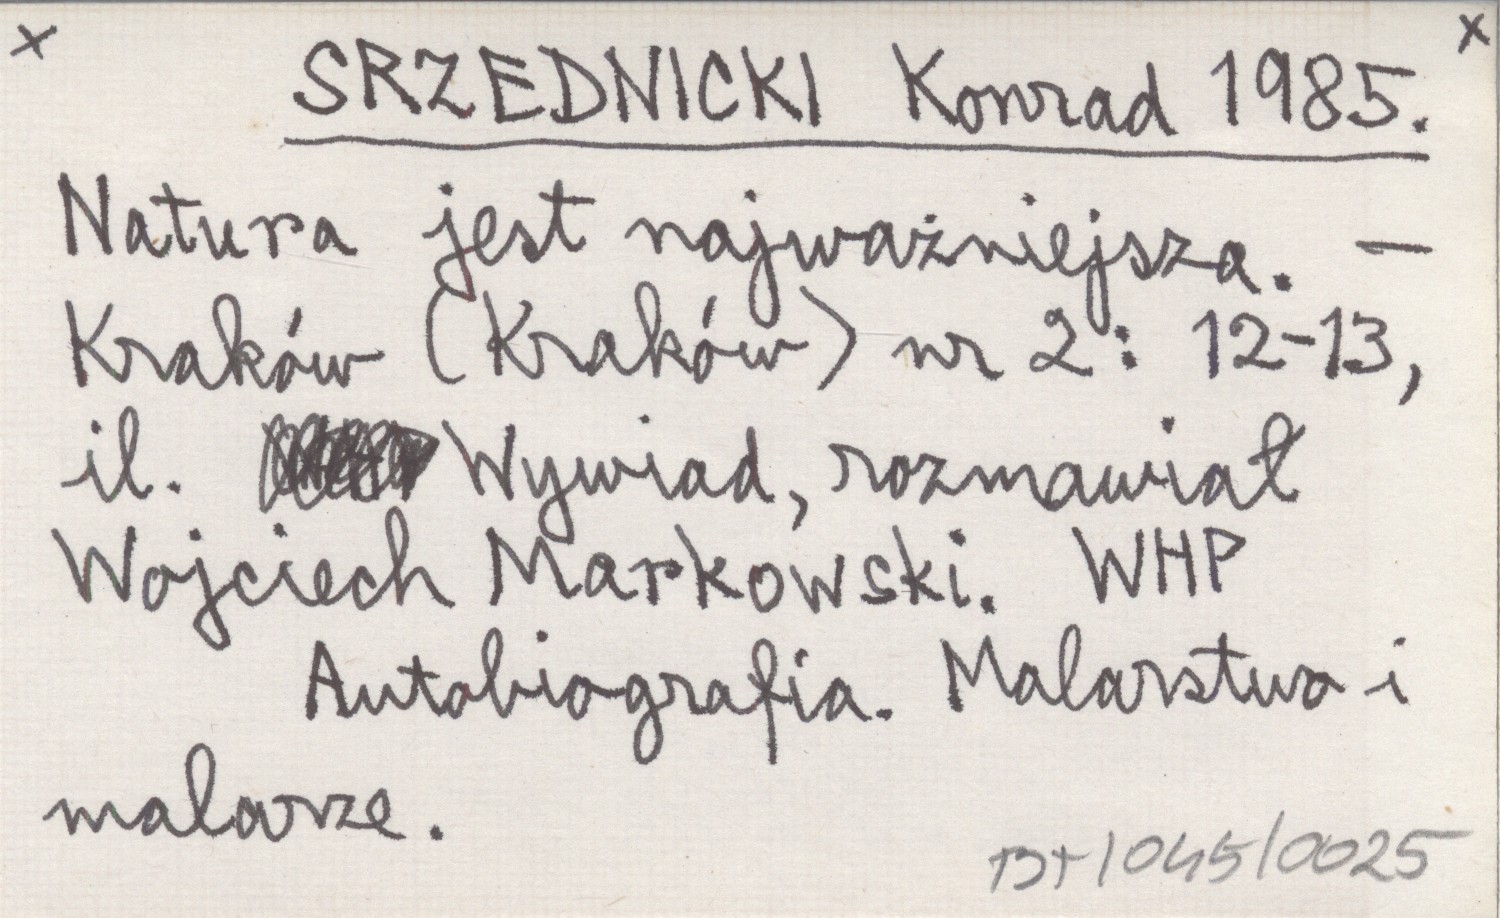 x x
SRZEDNICKI Konrad 1985.
Natura jest najważniejsza. —
Kraków (Kraków) nr 2: 12-13,
il. Wywiad, rozmawiał
Wojciech Markowski. WHP
Autobiografia. Malarstwo i
malarze.
BT/045/0025